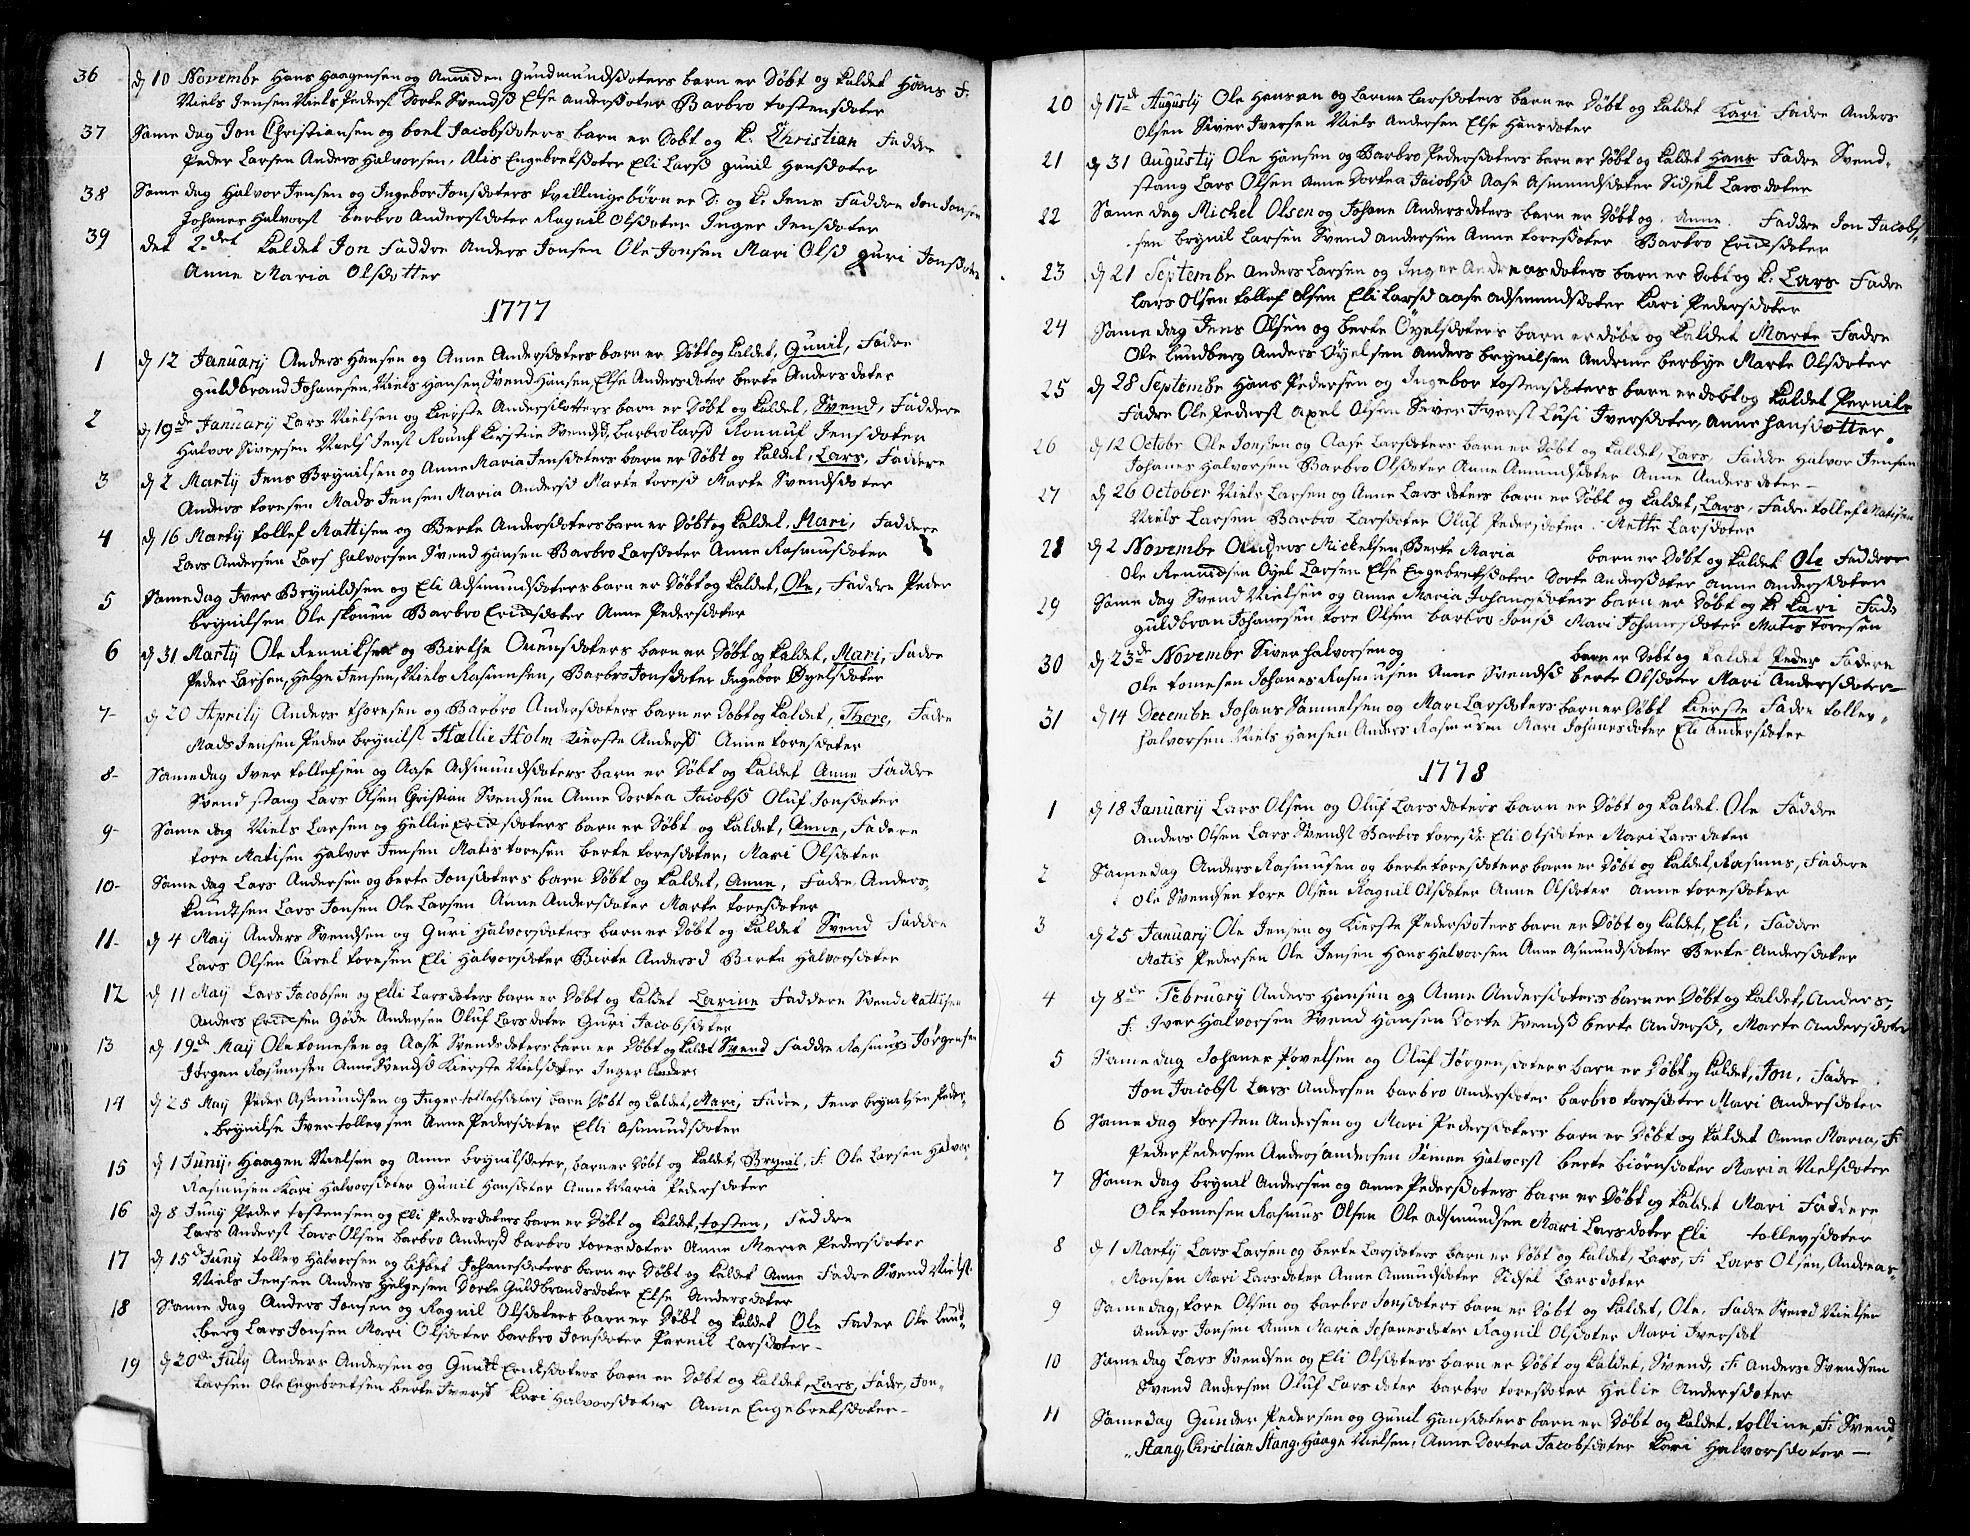 36 dj 10 Novembr Hans Haagensen og Anniden Gundmundsdoters barn er Döbt og kaldet Hans F:
Niels Jensen Niels Peders Dorte Svendsd Else Andersdoter Barbro Tostensdoter
37 Same dag Jon Christiansen og boel Jacobsdoters barn er Döbt og k. Christian Faddre
Peder Larsen Anders Halvorsen, Alis Engebretsdoter Eli Larsd gunil Hansdoter
38 Same dag Halvor Jensen og Ingebor Jonsdoters tvillingebörn er D: og k. Jens Faddre Jon Jonsen
Johanes Halvors Barbro Andersdoter Ragnil Olsdoter Inger Jensdoter
39 det 2det kaldet Jon Faddre Anders Jonsen Ole Jonsen Mari Olsd guri Jonsdoter
Anne Maria Olsdotter
1777
1 dj 12 January Anders Hansen og Anne Andersdoters barn er Döbt og kaldet, Gunil, Fadre
guldbrand Johanesen, Niels Hansen Svend Hansen, Else Andersdoter berte Andersdoter
2 dj 19de January Lars Nielsen og Kierste Andersdotters barn er Döbt og kaldet, Svend, Faddere
Halvor Siversen Niels Jens Kirstie Svendsd, barbro Larsd Jensdoter
3 dj 2 Martij Jens Brynilsen og Anne Maria Jensdoters barn er Döbt og kaldet, Lars, Faddere
Anders toresen Mads Jensen Maria Andersd Marte toresd Marte Svendsdoter
4 dj 16 Martij tollef Mattisen og Berte Andersdoters barn er Döbt og kaldet, Mari, Faddere
Lars Andersen Lars Halvorsen Svend Hansen Barbro Larsdoter Anne Rasmusdoter
5 Same dag Iver Brynildsen og Eli Asmundsdoters barn er Döbt og kaldet, Ole, Faddre Peder
brynilsen Ole skouen Barbro Ericksdoter Anne Pedersdoter
6 dj 31 Martij Ole Renniksen og Birthe Ouensdoters barn er Döbt og kaldet, Mari, Fadre
Peder Larsen, Helge Jensen, Niels Rasmusen, Barbro Jonsdoter Ingebor Öyelsdoter
7- dj 20 Aprilij Anders thoresen og Barbro Andersdoters barn er Dobt og kaldet, Thore, Fadre
Mads Jensen Peder brynils Hællie Holm kierste Andersd Anne toresdoter
8- Same dag Iver tollefsen og Aase Asmundsdoters barn er Döbt og kaldet Anne Faddre
Svend stang Lars Olsen Cristian Svendsen Anne Dortea Jacobsd Oluf Jonsdoter
9- Same dag Niels Larsen og Hellie Ericksdoters barn er Döbt og kaldet, Anne, Fadere
tore Matisen Halvor Jensen Matis toresen berte toresdoter, Mari Olsdoter
10- Same dag Lars Andersen og berte Jonsdoters barn Döbt og kaldet, Anne, Fadre, Anders
knudtsen Lars Jonsen Ole Larsen Anne Andersdoter Marte toresdoter
11- dj 4 Maij Anders Svendsen og Guri Halvorsdoters barn er Döbt og kaldet Svend Faddre
Lars Olsen Carel toresen Eli Halvorsdoter Birte Andersd Birte Halvorsdoter
12 dj 11 Maij Lars Jacobsen og Elli Larsdoters barn er Döbt og kaldet Larine Faddere Svend Mattisen
Anders Ericksen Göde Andersen Oluf Larsdoter Guri Jacobsdoter
13 dj 19de Maij Ole tomesen og Aase Svendsdoters barn er Döbt og kaldet Svend Faddre Rasmus Jörgensen
Jörgen Rasmusen Anne Svendsd Kierste Nielsdoter Inger Anders
14 dj 25 Maij Peder Asmundsen og Inger tollefsdoters barn Döbt og kaldet, Mari, Fadre, Jens brynilsen Peder
Brynilse Iver tollevsen Anne Pedersdoter Elli Asmundsdoter
15 dj 1 Junij, Haagen Nielsen og Anne brynilsdoter, barn er Döbt og kaldet, Brynil, F. Ole Larsen Halvor
Rasmusen Kari Halvorsdoter Gunil Hansdoter Anne Maria Pedersdoter
16 dj 8 Junij Peder tostensen og Eli Pedersdoters barn er Döbt og kaldet, tosten, Faddre
Lars Anders Lars Olsen barbro Andersd barbro toresdoter Anne Maria Pedersdoter
17 dj 15de Junij tollev Halvorsen og lisbet Johanesdoters barn er Döbt og kaldet Anne Fadre Svend Niels
Niels Jensen Anders Helgesen Dorte Guldbrandsdoter Else Andersdoter
18 Same dag Anders Jonsen og Ragnil Olsdoters barn er Döbt og kaldet Ole Fader Ole Lund
berg Lars Jonsen Mari Olsdoter barbro Jonsdoter Parnil Larsdoter
19 dj 20de July Anders Andersen og Ericksdoters barn er Döbt og kaldet, Lars, Fadre, Jon
Larsen Ole Engebretsen berte Iversd Kari Halvorsdoter Anne Engebretsdoter
20 dj 17de Augustij Ole Hansen og Larine Larsdoters barn er Döbt og kaldet Kari Fadre Anders
Olsen Siver Iversen Niels Andersen Else Hansdoter
21 dj 31 Augustij Ole Hansen og Barbro Pedersdoters barn er Döbt og kaldet Hans Fadre Svend
stang Lars Olsen Anne Dortea Jacobsd Aase Asmundsdoter Sidsel Larsdoter
22 Same dag Michel Olsen og Johane Andersdoters barn er Döbt og Anne Faddre Jon Jacob
sen brynil Larsen Svend Andersen Anne toresdoter Barbro Ericksdoter
23 dj 21 Septembr Anders Larsen og Inger Andreasdoters barn er Döbt og k. Lars Fadre
Lars Olsen tollef Olsen Eli Larsd Aase Asmundsdoter Kari Pedersdoter
24 Same dag Jens Olsen og berte Öyelsdoters barn er döbt og kaldet Marte Fadre
Ole Lundberg Anders Öyelsen anders brynilsen Andrine berbye Marte Olsdoter
25 dj 28 Septembr Hans Pedersen og Ingebor tostensdoters barn er dobt og kaldet Pernile
Fadre Ole Peders Axel Olsen Siver Ivers Lusi Iversdoter, Anne Hansdotter.
26 dj 12 Octobr Ole Jonsen og Aase Larsdoters barn er Döbt og kaldet, Lars, Faddre Halvor Jensen
Johanes Halvorsen Barbro Olsdoter Anne Amundsdoter Anne Andersdoter
27 dj 26 October Niels Larsen og Anne Larsdoters barn er Döbt og kaldet, Lars, Fadre tollef Matisen
Niels Larsen Barbro Larsdoter Oluf Pedersdoter Mette Larsdoter
28 dj 2 Novembr Mickelsen, Berte Maria barn er Döbt og kaldet Ole Faddere
Ole Öyel Larsen Else Engebretsdoter Dorte Andersdoter Anne Andersdoter
29 Same dag Svend Nielsen og Anne Maria Johanesdoters barn er Döbt og k. Kari Fad
guldbran Johanesen tore Olsen barbro Jonsd Mari Johanesdoter Matis toresen
30 dj 23de Novembr Siver Halvorsen og barn er Döbt og kaldet Peder Fadere
Ole tomesen Johanes Rasmusen Anne Svendsd berte Olsdoter Mari Andersdoter
31 dj 14 Decembr Johans Samuelsen og Mari Larsdoters barn er Döbt Kierste Fadre tollev
Halvorsen Niels Hansen Anders Rasmusen Mari Johanesdoter Eli Andersdoter
1778
1 dj 18 January Lars Olsen og Oluf Larsdoters barn er Döbt og kaldet. Ole Faddre
Anders Olsen Lars Svends Barbro toresd Eli Olsdoter Mari Larsdoter
2 Same dag Anders Rasmusen og berte toresdoters barn er Döbt og kaldet, Rasmus, Fadere
Ole Svendsen tore Olsen Ragnil Olsdoter Anne Olsdoter anne toresdoter
3 dj 25 January Ole Jensen og Kierste Pedersdoters barn er Döbt og kaldet, Eli, Faddre
Matis Pedersen Ole Jensen Hans Halvorsen Anne Asmundsdoter Berte Andersdoter
4 dj 8de February Anders Hansen og Anne Andersdoters barn er Döbt og kaldet, Anders
F: Iver Halvorsen Svend Hansen Dorte Svendsd berte Andersd, Marte Andersdoter
5 Same dag Johanes Povelsen og Oluf Jörgensdoters barn er Döbt og kaldet, Jon, Fadre
Jon Jacobs Lars Andersen barbro Andersdoter barbro toresdoter Mari Andersdoter
6 Same dag torsten Andersen og Mari Pedersdoters barn er Döbt og kaldet Anne Maria, F:
Peder Pedersen Anders Andersen Simen Halvors berte biörnsdoter Maria Nielsdoter
7 Same dag brynil Andersen og anne Pedersdoters barn er Döbt og kaldet Mari Faddere
Ole tomesen Rasmus Olsen Ole Asmundsen Mari Larsdoter Eli tollevsdoter
8 dj 1 Martij Lars Larsen og berte Larsdoters barn er Döbt og kaldet, Lars, F: Lars Olsen, Andreas
Monsen Mari Larsdoter Anne Amundsdoter Sidsel Larsdoter
9 Same dag, tore Olsen og barbro Jonsdoters barn er Döbt og kaldet, Ole, Fadre Svend Nielsen
Anders Jonsen Anne Maria Johanesdoter Ragnil Olsdoter Mari Iversdot
10 Same dag Lars Svendsen og Eli Olsdoters barn er Döbt og kaldet, Svend, F Anders Svendsen
Svend Andersen Oluf Larsdoter barbro toresdoter Helie Andersdoter
11 Same dag Gunder Pedersen og Gunil Hansdoters barn er Döbt og kaldet, tolline, F: Svend
Stang, Christian Stang, Haage Nielsen, Anne Dortea Jacobsdoter Kari Halvorsdoter